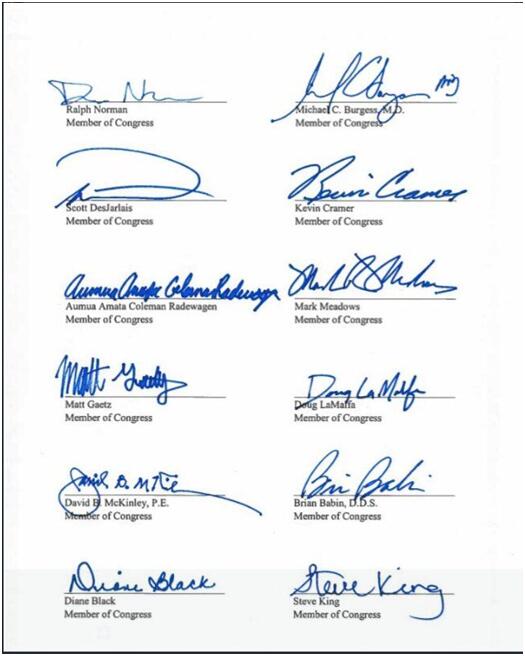 Ralph Norman
Member of Congress
MD
Michael C. Burgess, M.D.
Member of Congress
Scott DesJarlais
Member of Congress
Kevin Cramer
Kevin Cramer
Member of Congress
Aumua Amata Coleman Radewagen
Aumua Amata Coleman Radewagen
Member of Congress
Mark Meadows
Member of Congress
Matt
Matt Gaetz
Member of Congress
Doug LaMalfa
Doug LaMaffa
Member of Congress
David B. McKinley, P.E.
Member of Congress
Brian Babin
Brian Babin, D.D.S.
Member of Congress
Diane Black
Diane Black
Member of Congress
Steve King
Steve King
Member of Congress